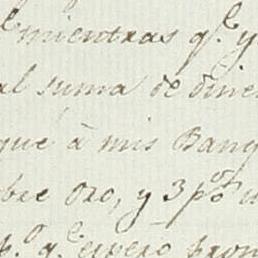 mientras q.e y
al suma de dine
que à mis Banq
bre oro, y 3 p.os
p.o q.e espero pron